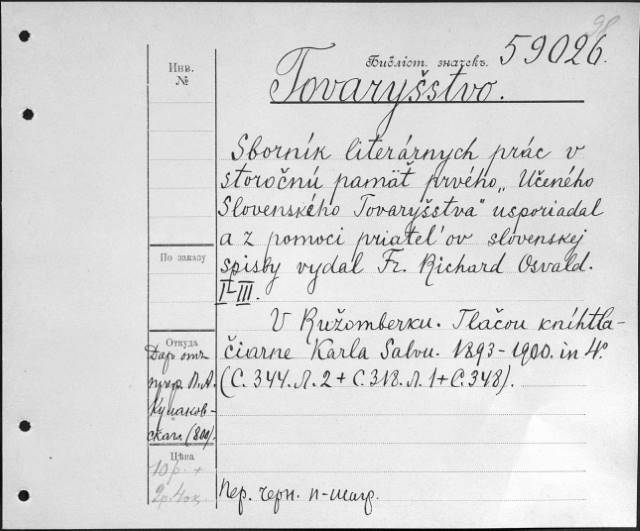 98
Инв.
№
Библіот. значекъ.
59026.
Tovaryšstvo.
Sborník literárnych prác v
storočnú pamäť prvého „Učeného
Slovenského Tovaryšstva" usporiadal
a z pomoci priateľ'ov slovenskej
spisby vydal Fr. Richard Osvald.
I-III.
V Ružomberku. Tlačou kníhtla-
čiarne Karla Salvu. 1893-1900. in 4°.
(С. 344. Л. 2 + С. 318. Л. 1 + С. 348).
По заказу
Откуда
Даръ отъ
проф. П. А.
Кулаков-
скаго. (800).
Цѣна
10 р. +
Пер. черн. п-шагр.